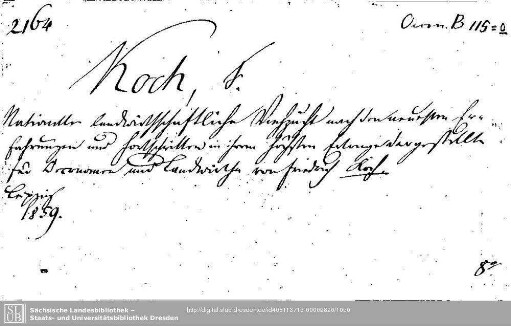 2164
Oecon. B 115=o
Koch, F.
Rationelle landwirthschaftliche Viehzucht nach den neuesten Er-
fahrungen und Fortschritten in ihrem höchsten Ertrage dargestellt
für Oeconomen und Landwirthe von Friedrich Koch.
Leipzig
1859.
8°
Sächsische Landesbibliothek –
Staats- und Universitätsbibliothek Dresden